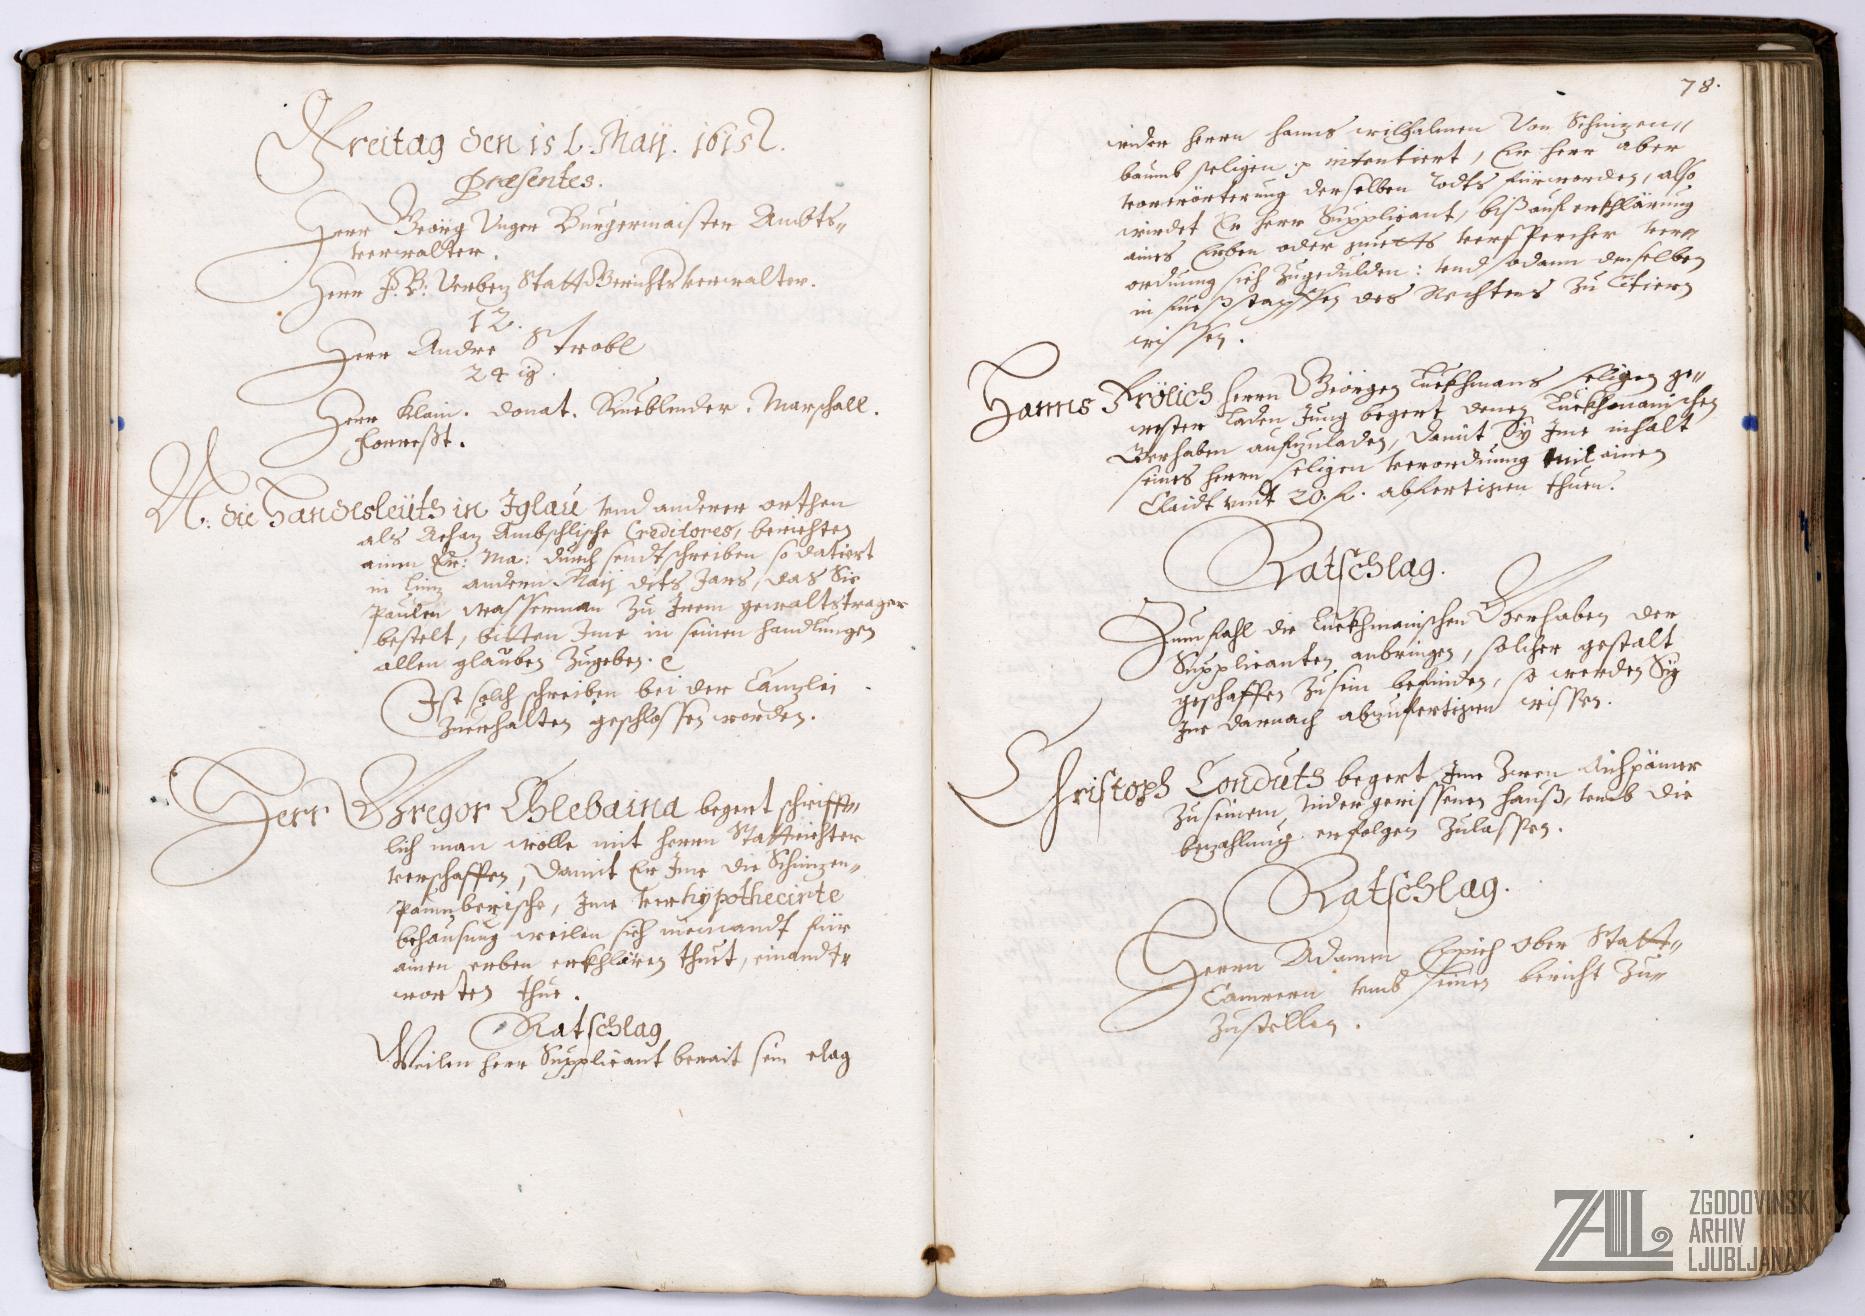 Freitag den 15 t. Maij. 1615
Præsentes.
Herr Geörg Unger Burgermaister Ambts-
verwalter.
Herr J. B. Verbez Statt Gerichtsverwalter.
12.
Herr Andre Strobl
24 ig.
Herr Klain. Donat. Rueblender. Marschall.
Forresst.
N: die Handlsleüth in Iglau vnd anderer orthen
als Achaz Creditores, berichten
ainen Er: Ma: durch sendtschreiben so datiert
in Linz andern Maij dits Jars, das Sie
Paulen Wasserman zu Irem gewaltstrager
bestelt, bitten Ime in seinen handlungen
allen glauben zugeben.
Ist solch schreiben bei der Canzlei
zuerhalten geschlossen worden.
Herr Gregor Chlebaina begert schrifft-
lich man wölle mit herrn Stattrichter
verschaffen, damit Er Ime die Schinzen-
Paumberische, Ime verhÿpothecirte
behausung weilen sich niemandt für
ainen erben erkhlären thuet, einandt-
worten thue.
Ratschlag
Weilen herr Supplicant berait sein clag
78.
wider herrn Hanns Wilhalmen von Schinzen-
baumb seligen intentiert, Er herr aber
vor erörterung derselben todts fürworden, also
wirdet Er herr Supplicant, biß auf erkhlärung
aines Erben oder ver-
ordnung sich zugedulden: vnd sodann denselben
in fueßstapffen des Rechtens zu Citiern
wissen.
Hanns Frölich herrn Geörgen Tuekhmans seligen ge-
wester Laden Jung begert denen Tuekhmanischen
Gerhaben aufzuladen, damit Sÿ Ime inhalt
seines herrn seligen verordnung mit ainem
Claidt vnd 20. f. abfertigen thuen.
Ratschlag.
Zum fahl die Tuekhmanischen Gerhaben der
Supplicanten anbringen, solcher gestalt
geschaffen zusein befinden, so werden Sÿ
Ine darnach abzufertigen wissen.
Christoph Conduth begert Ime zwen Aichpämer
zu seinem, nidergerissenen hauß, vmb die
bezahlung erfolgen zulassen.
Ratschlag.
Herrn Adamen Eppich Ober Statt-
Camrern vmb seinen bericht zu-
zustellen.
ZAL
ZGODOVINSKI
ARHIV
LJUBLJANA